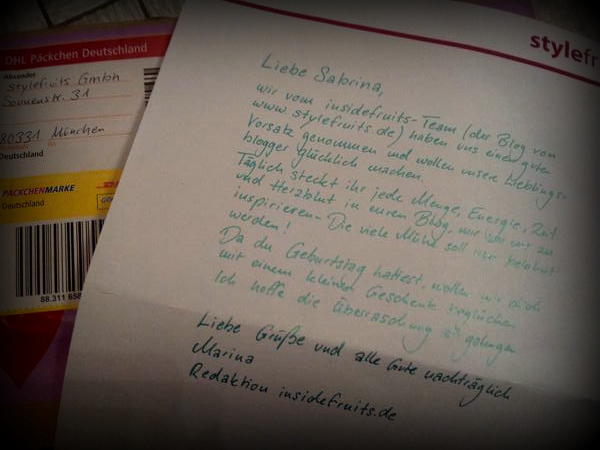 DHL Päckchen Deutschland
Absender
Stylefruits GmbH
Sonnenstr. 31
80331 München
Deutschland
PÄCKCHENMARKE
Deutschland
58.311 658
stylefr
Liebe Sabrina,
wir vom insidefruits-Team (der Blog von
www.stylefruits.de) haben uns einen guten
Vorsatz genommen und wollen unsere Lieblings-
blogger glücklich machen.
Täglich steckt ihr jede Menge, Energie, Zeit
und Herzblut in euren Blog, nur um zu
inspirieren - Die viele Mühe soll nun belohnt
werden!
Da du Geburtstag hattest, wollen wir dich
mit einem kleinen Geschenk beglücken
Ich hoffe die Überraschung ist gelungen
Liebe Grüße und alle Gute nachträglich
Marina
Redaktion insidefruits.de